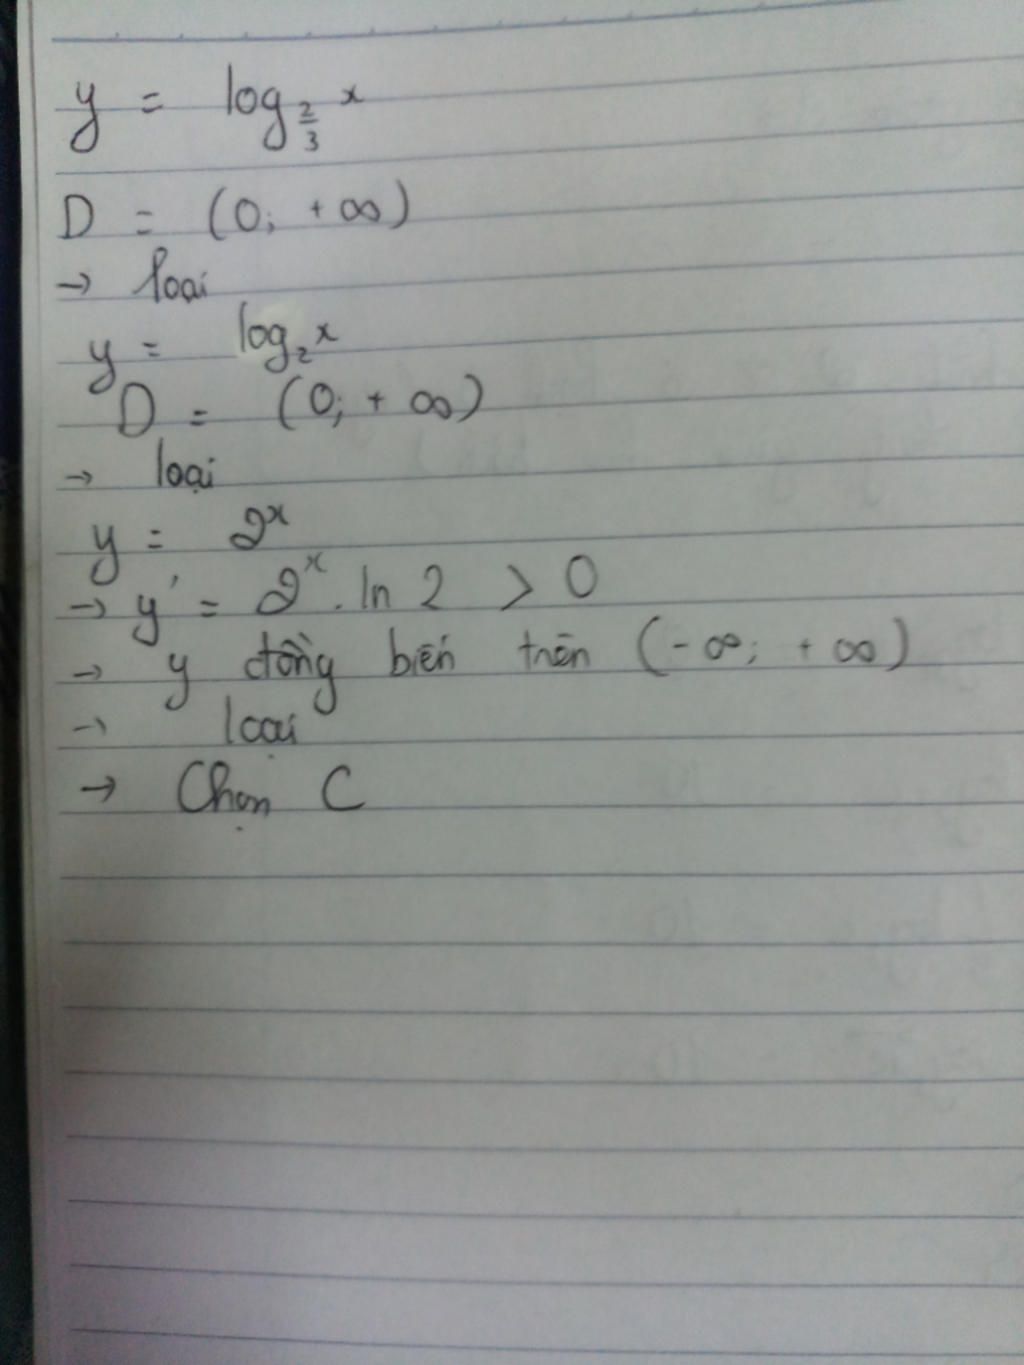 y = log_{2/3} x
D = (0; +∞)
→ loại
y = log₂ x
D = (0; +∞)
→ loại
y = 2ˣ
→ y' = 2ˣ . ln 2 > 0
→ y đồng biến trên (-∞; +∞)
→ loại
→ Chọn C